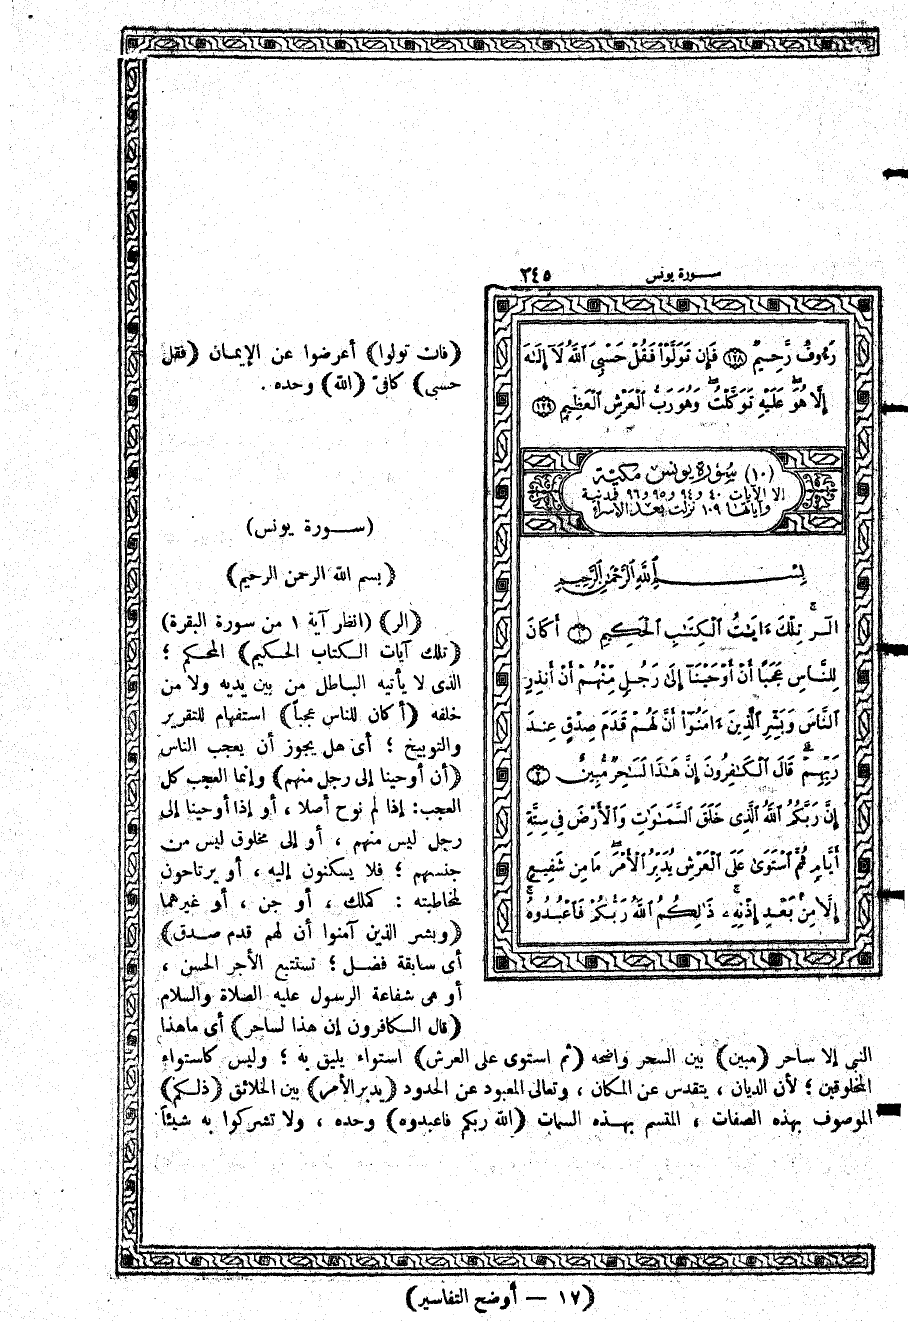 سورة يونس ٢٤٥
رَءُوفٌ رَّحِيمٌ ١٢٨ فَإِن تَوَلَّوْا۟ فَقُلْ حَسْبِىَ ٱللَّهُ لَآ إِلَٰهَ
إِلَّا هُوَ ۖ عَلَيْهِ تَوَكَّلْتُ ۖ وَهُوَ رَبُّ ٱلْعَرْشِ ٱلْعَظِيمِ ١٢٩
(١٠) سُورَة يُونس مكيّة
إلا الآيات ٤٠ و٩٤ و٩٥ و٩٦ فمدنية
وآياتها ١٠٩ نزلت بعد الإسراء
بِسْمِ ٱللَّهِ ٱلرَّحْمَٰنِ ٱلرَّحِيمِ
الٓر ۚ تِلْكَ ءَايَٰتُ ٱلْكِتَٰبِ ٱلْحَكِيمِ ١ أَكَانَ
لِلنَّاسِ عَجَبًا أَنْ أَوْحَيْنَآ إِلَىٰ رَجُلٍ مِّنْهُمْ أَنْ أَنذِرِ
ٱلنَّاسَ وَبَشِّرِ ٱلَّذِينَ ءَامَنُوٓا۟ أَنَّ لَهُمْ قَدَمَ صِدْقٍ عِندَ
رَبِّهِمْ ۗ قَالَ ٱلْكَٰفِرُونَ إِنَّ هَٰذَا لَسَٰحِرٌ مُّبِينٌ ٢
إِنَّ رَبَّكُمُ ٱللَّهُ ٱلَّذِى خَلَقَ ٱلسَّمَٰوَٰتِ وَٱلْأَرْضَ فِى سِتَّةِ
أَيَّامٍ ثُمَّ ٱسْتَوَىٰ عَلَى ٱلْعَرْشِ يُدَبِّرُ ٱلْأَمْرَ ۖ مَا مِن شَفِيعٍ
إِلَّا مِنۢ بَعْدِ إِذْنِهِۦ ۚ ذَٰلِكُمُ ٱللَّهُ رَبُّكُمْ فَٱعْبُدُوهُ ۚ
(فإن تولوا) أعرضوا عن الإيمان (فقل
حسبى) كافىّ (الله) وحده .
(سورة يونس)
(بسم الله الرحمن الرحيم)
(الر) (انظر آية ١ من سورة البقرة)
(تلك آيات الكتاب الحكيم) المحكم ؛
الذى لا يأتيه الباطل من بين يديه ولا من
خلفه (أكان للناس عجباً) استفهام للتقرير
والتوبيخ ؛ أى هل يجوز أن يعجب الناس
(أن أوحينا إلى رجل منهم) وإنما العجب كل
العجب: إذا لم نوح أصلا ، أو إذا أوحينا إلى
رجل ليس منهم ، أو إلى مخلوق ليس من
جنسهم ؛ فلا يسكنون إليه ، أو يرتاحون
لمخاطبته : كملك ، أو جن ، أو غيرهما
(وبشر الذين آمنوا أن لهم قدم صدق)
أى سابقة فضل ؛ تستتبع الأجر الحسن ،
أو هى شفاعة الرسول عليه الصلاة والسلام
(قال الكافرون إن هذا لساحر) أى ماهذا
النبى إلا ساحر (مبين) بين السحر واضحه (ثم استوى على العرش) استواء يليق به ؛ وليس كاستواء
المخلوقين ؛ لأن الديان ، يتقدس عن المكان ، وتعالى المعبود عن الحدود (يدبر الأمر) بين الخلائق (ذلكم)
الموصوف بهذه الصفات ، المتسم بهذه السمات (الله ربكم فاعبدوه) وحده ، ولا تشركوا به شيئاً
(١٧ — أوضح التفاسير)